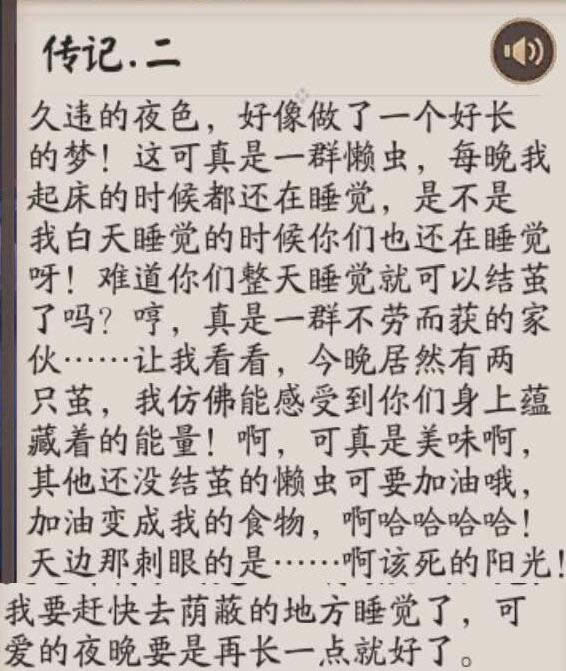 传记.二
久违的夜色，好像做了一个好长
的梦！这可真是一群懒虫，每晚我
起床的时候都还在睡觉，是不是
我白天睡觉的时候你们也还在睡觉
呀！难道你们整天睡觉就可以结茧
了吗？哼，真是一群不劳而获的家
伙……让我看看，今晚居然有两
只茧，我仿佛能感受到你们身上蕴
藏着的能量！啊，可真是美味啊，
其他还没结茧的懒虫可要加油哦，
加油变成我的食物，啊哈哈哈哈！
天边那刺眼的是……啊该死的阳光！
我要赶快去荫蔽的地方睡觉了，可
爱的夜晚要是再长一点就好了。